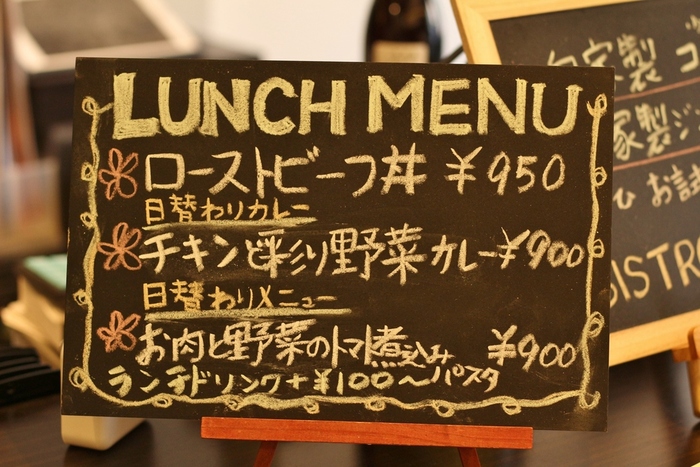 LUNCH MENU
ローストビーフ丼 ¥950
日替わりカレー
チキンと彩り野菜カレー ¥900
日替わりメニュー
お肉と野菜のトマト煮込み ¥900
ランチドリンク+¥100〜パスタ
自家製
家製ジ
お
BISTR